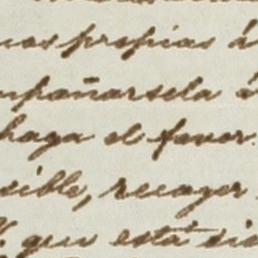 propias á
mpañarsela á
haga el favor.
sible, recoger
que está sie